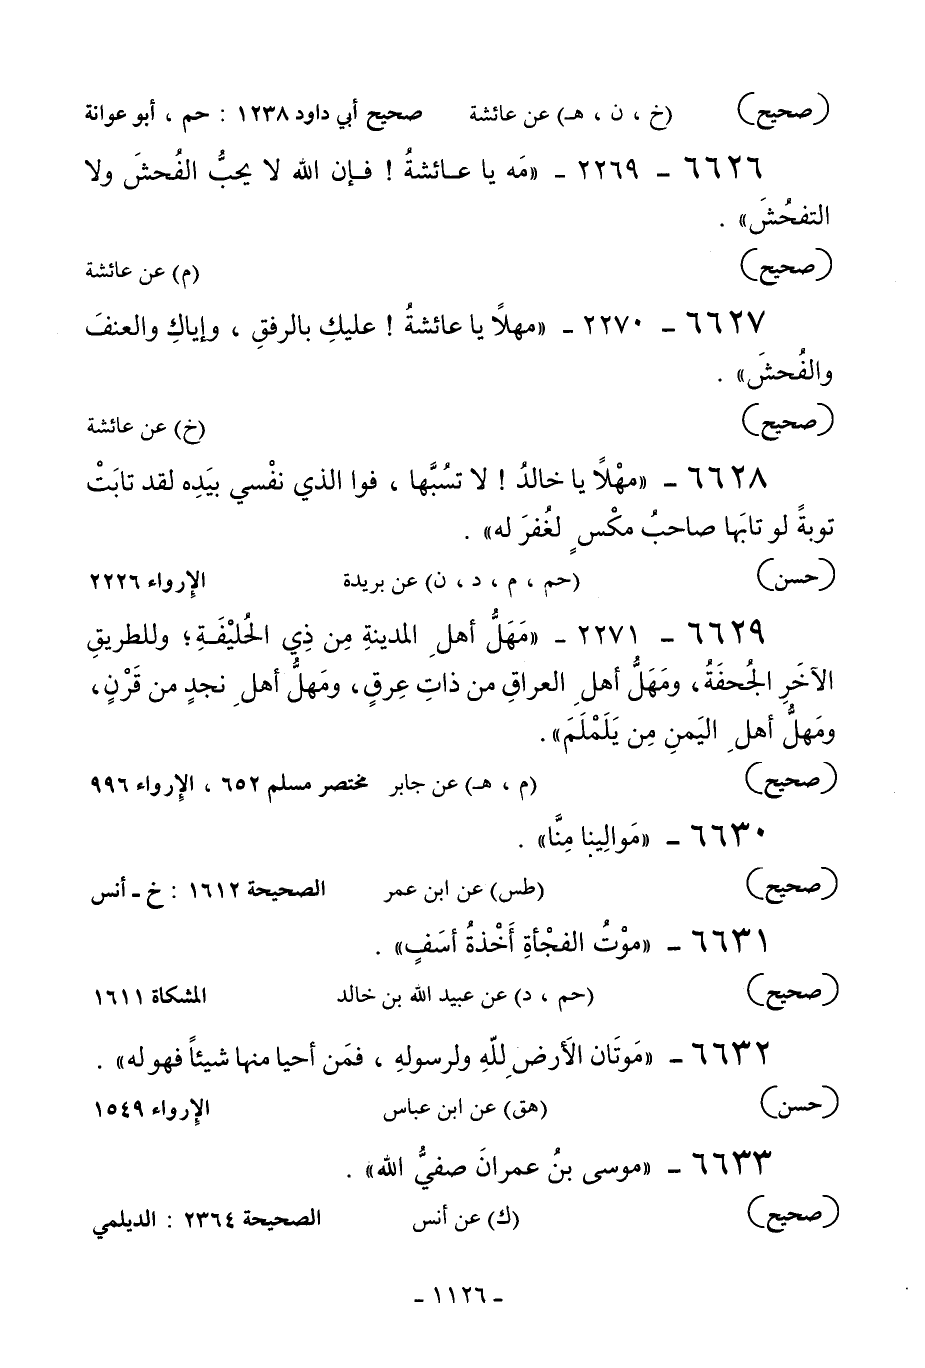 (صحيح) (خ ، ن ، هـ) عن عائشة صحيح أبي داود ١٢٣٨ : حم ، أبو عوانة
٦٦٢٦ ـ ٢٢٦٩ ـ «مَه يا عـائشةُ ! فـإن الله لا يحبُّ الفُحشَ ولا
التفحُشَ» .
(صحيح) (م) عن عائشة
٦٦٢٧ ـ ٢٢٧٠ ـ «مهلًا يا عائشةُ ! عليكِ بالرفقِ ، وإياكِ والعنفَ
والفُحشَ» .
(صحيح) (خ) عن عائشة
٦٦٢٨ ـ «مهْلًا يا خالدُ ! لا تسُبَّها ، فوا الذي نفْسي بيَدِه لقد تابَتْ
توبةً لو تابَها صاحبُ مكْسٍ لغُفرَ له» .
(حسن) (حم ، م ، د ، ن) عن بريدة الإرواء ٢٢٢٦
٦٦٢٩ ـ ٢٢٧١ ـ «مَهَلُّ أهلِ المدينةِ مِن ذِي الحُلَيْفَـةِ؛ وللطريقِ
الآخَرِ الجُحفَةُ، ومَهَلُّ أهلِ العراقِ من ذاتِ عِرقٍ، ومَهلُّ أهلِ نجدٍ من قَرْنٍ،
ومَهلُّ أهلِ اليَمنِ مِن يَلَمْلَمَ» .
(صحيح) (م ، هـ) عن جابر مختصر مسلم ٦٥٢ ، الإرواء ٩٩٦
٦٦٣٠ ـ «مَوالِينا مِنَّا» .
(صحيح) (طس) عن ابن عمر الصحيحة ١٦١٢ : خ ـ أنس
٦٦٣١ ـ «موْتُ الفجْأةِ أَخْذةُ أسَفٍ» .
(صحيح) (حم ، د) عن عبيد الله بن خالد المشكاة ١٦١١
٦٦٣٢ ـ «مَوتَان الأَرضِ للّهِ ولرسولهِ ، فمَن أحيا منها شيئاً فهو له» .
(حسن) (هق) عن ابن عباس الإرواء ١٥٤٩
٦٦٣٣ ـ «موسى بنُ عمرانَ صفيُّ الله» .
(صحيح) (ك) عن أنس الصحيحة ٢٣٦٤ : الديلمي
ـ ١١٢٦ ـ